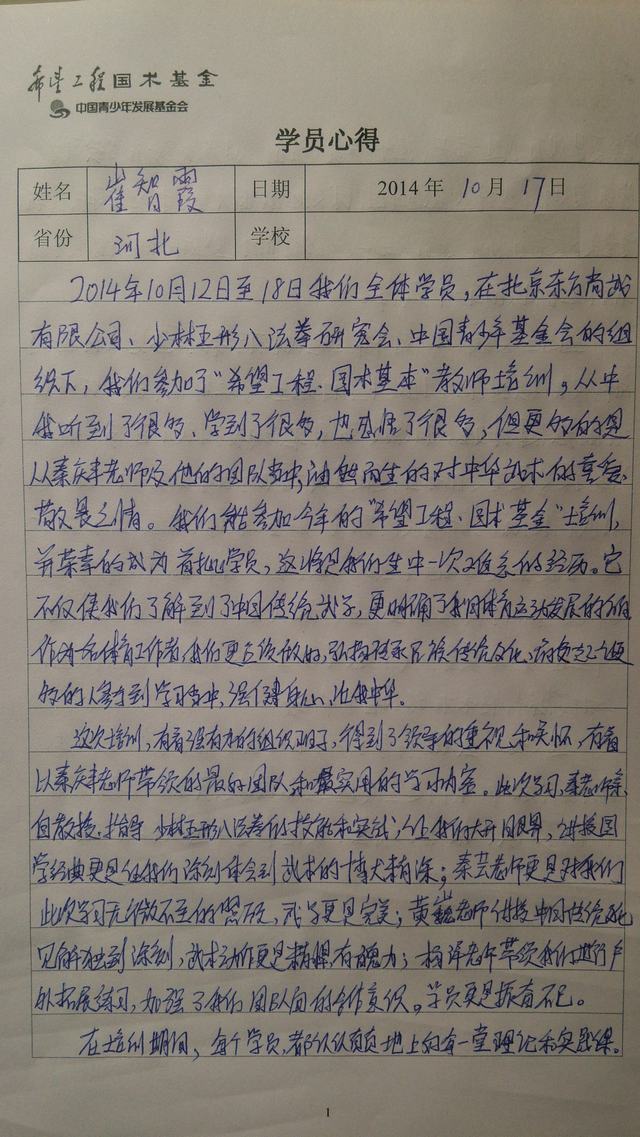 希望工程国术基金
中国青少年发展基金会
学员心得
姓名 崔智霞 日期 2014年 10月 17日
省份 河北 学校
2014年10月12日至18日我们全体学员,在北京东方尚武
有限公司、少林五形八法拳研究会、中国青少年基金会的组
织下,我们参加了"希望工程·国术基本"教师培训,从中
我听到了很多、学到了很多,也感悟了很多,但更多的是
从秦庆丰老师及他的团队当中,油然而生的对中华武术的重爱、
敬畏之情。我们能参加今年的"希望工程·国术基金"培训,
并荣幸的成为首批学员,这将是我们一生中一次的经历。它
不仅使我们了解到了中国传统武学,更明确了我国体育运动发展的方向
作为名体育工作者,我们更应该做好,弘扬传承民族传统文化,
的人参与到学习当中,强健身心,壮我中华。
这次培训,有着强有力的组织班子,得到了领导的重视和关怀,有着
以秦庆丰老师带领的最好团队和最实用的学习内容。此次学习,秦老师亲
自教授、指导少林五形八法拳的技能和实战,让我们大开眼界,讲授国
学经典更是让我们深刻体会到武术的博大精深;秦芸老师更是对我们
此次学习无微不至的照顾,武学更是完美;黄巍老师讲授中国传统文化
见解独到深刻,武术动作更是精悍有魄力;杨洋老师带领我们进行户
外拓展练习,加强了我们团队间的合作意识。学员更是振奋不已。
在培训期间,每个学员,都认认真真地上好每一堂理论和实践课。
1